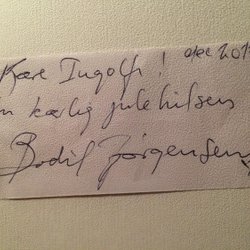 Kære Ingolf! dec 201
n kærlig julehilsen
Bodil Jørgensen